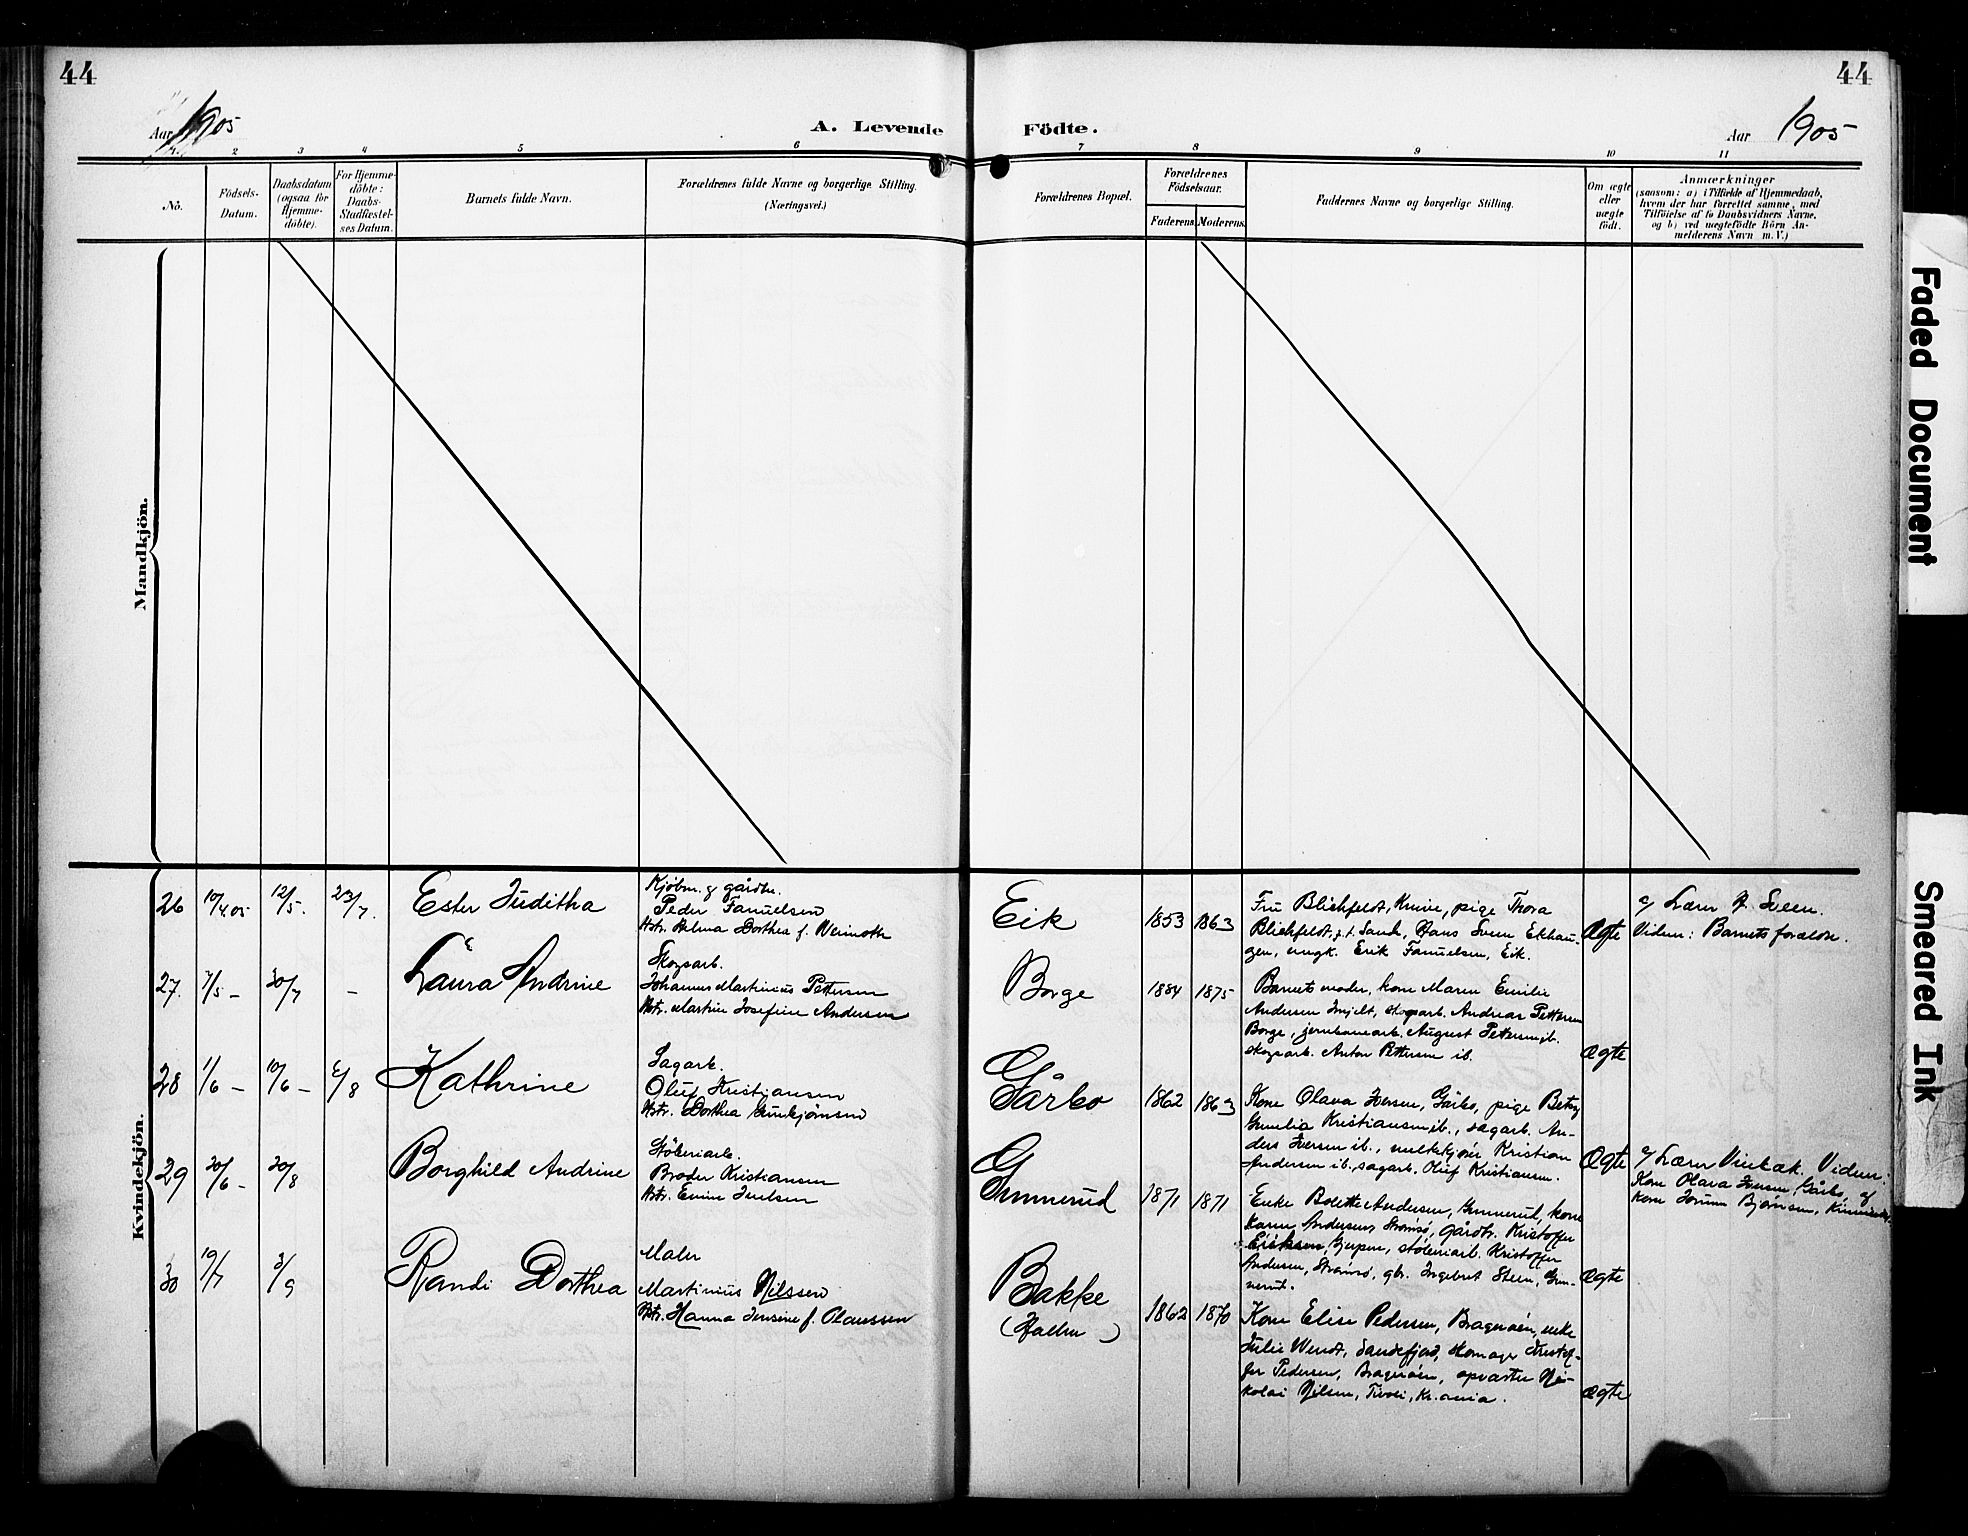 44
44
Aar 1905
A. Levende
Födte.
Aar 1905
1 2 3 4 5 6 7 8 9 10 11
No.
Födsels-
Datum.
Daabsdatum
(ogsaa for
Hjemme-
döbte).
For Hjemme-
döbte:
Daabs-
Stadfæstel-
ses Datum.
Barnets fulde Navn.
Forældrenes fulde Navne og borgerlige Stilling.
(Næringsvei.)
Forældrenes Bopæl.
Forældrenes
Födselsaar.
Faderens Moderens
Faddernes Navne og borgerlige Stilling.
Om ægte
eller
uægte
födt.
Anmærkninger
(saasom: a) i Tilfælde af Hjemmedaab,
hvem der har forrettet samme, med
Tilföielse af to Daabsvidners Navne,
og b) ved uægtefödte Börn An-
melderens Navn m. V.)
Mandkjön.
Kvindekjön.
26 10/4 05 12/5. 23/7.
Ester Juditha
Kjöbm. & gårdbr.
Peder Fanuelsen
Hstr. Helma Dorthea f.
Eik
1853 1863
Fru Blichfeldt, pige Thora
Blichfeldt, Sande, Hans Sveen Ekhau-
gen, ungk. Erik Fanuelsen, Eik.
Ægte
Lærer Sveen.
Vidner: Barnets forældre.
27. 7/5 - 30/7 -
Laura Andrine
Skogsarb.
Johannes Martinius Pettersen
Hstr. Martine Josefine Andersen
Borge
1884 1875
Barnets moder, kone Maren Emilie
Andersen skogsarb. Andreas Pettersen
Borge, jernbanearb. August Pettersen ib.
skogsarb. Anton Pettersen ib.
Ægte
28 1/6 - 10/6 - 6/8
Kathrine
Sagarb.
Oluf Kristiansen
Hstr. Dorthea
Gårbo
1862 1863
Kone Olava Iversen, Gårbo, pige Betzy
Kristiansen ib., sagarb. An-
ders Iversen ib., melkekjører Kristian
Andersen ib., sagarb. Oluf Kristiansen.
Ægte
Lærer Vidner:
Kone Olava Iversen, Gårbo, og
Kone Bjørnsen,
29 20/6 - 20/8
Borghild Andrine
Støberiarb.
Broder Kristiansen
Hstr. Emine Juelsen
Gunnerud
1871 1871
Enke Bolette Andersen, Gunnerud, kone
Karen Andersen, Strømsø, gårdbr. Kristoffer
Eriksen, Gjerpen, støberiarb. Kristoffer
Andersen, Strømsø, gbr. Ingebret Steen, Gun-
nerud.
Ægte
30 19/7 3/9
Randi Dorthea
Maler
Martinius Nilssen
Hstr. Hanna Jensine f. Olaussen
Bakke
1862 1870
Kone Elise Pedersen, Bragerøen, enke
Julie Wendt, Sandefjord, skomager Kristof-
fer Pedersen, Bragerøen, opvarter Ni-
kolai Nilsen, Tivoli, Kr.ania.
Ægte
Faded Document
Smeared Ink